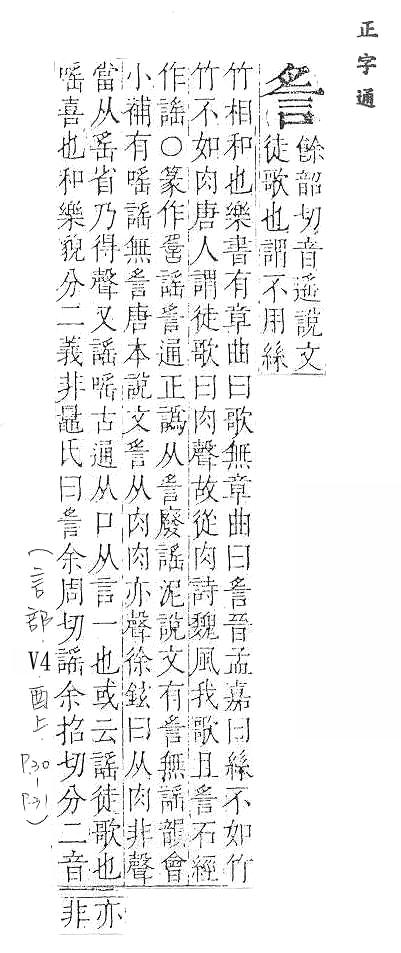 正字通
䚻
餘韶切音遥說文
徒歌也謂不用絲
竹相和也樂書有章曲曰歌無章曲曰䚻晉孟嘉曰絲不如竹
竹不如肉唐人謂徒歌曰肉聲故從肉詩魏風我歌且䚻石經
作謡○篆作謡䚻通正譌从䚻廢謡泥說文有䚻無謡韻會
小補有嗂謡無䚻唐本說文䚻从肉肉亦聲徐鉉曰从肉非聲
當从䍃省乃得聲又謡嗂古通从口从言一也或云謡徒歌也
嗂喜也和樂貌分二義非鼂氏曰䚻余周切謡余招切分二音
亦
非
(言部 V4 酉上 P.30-P.31)